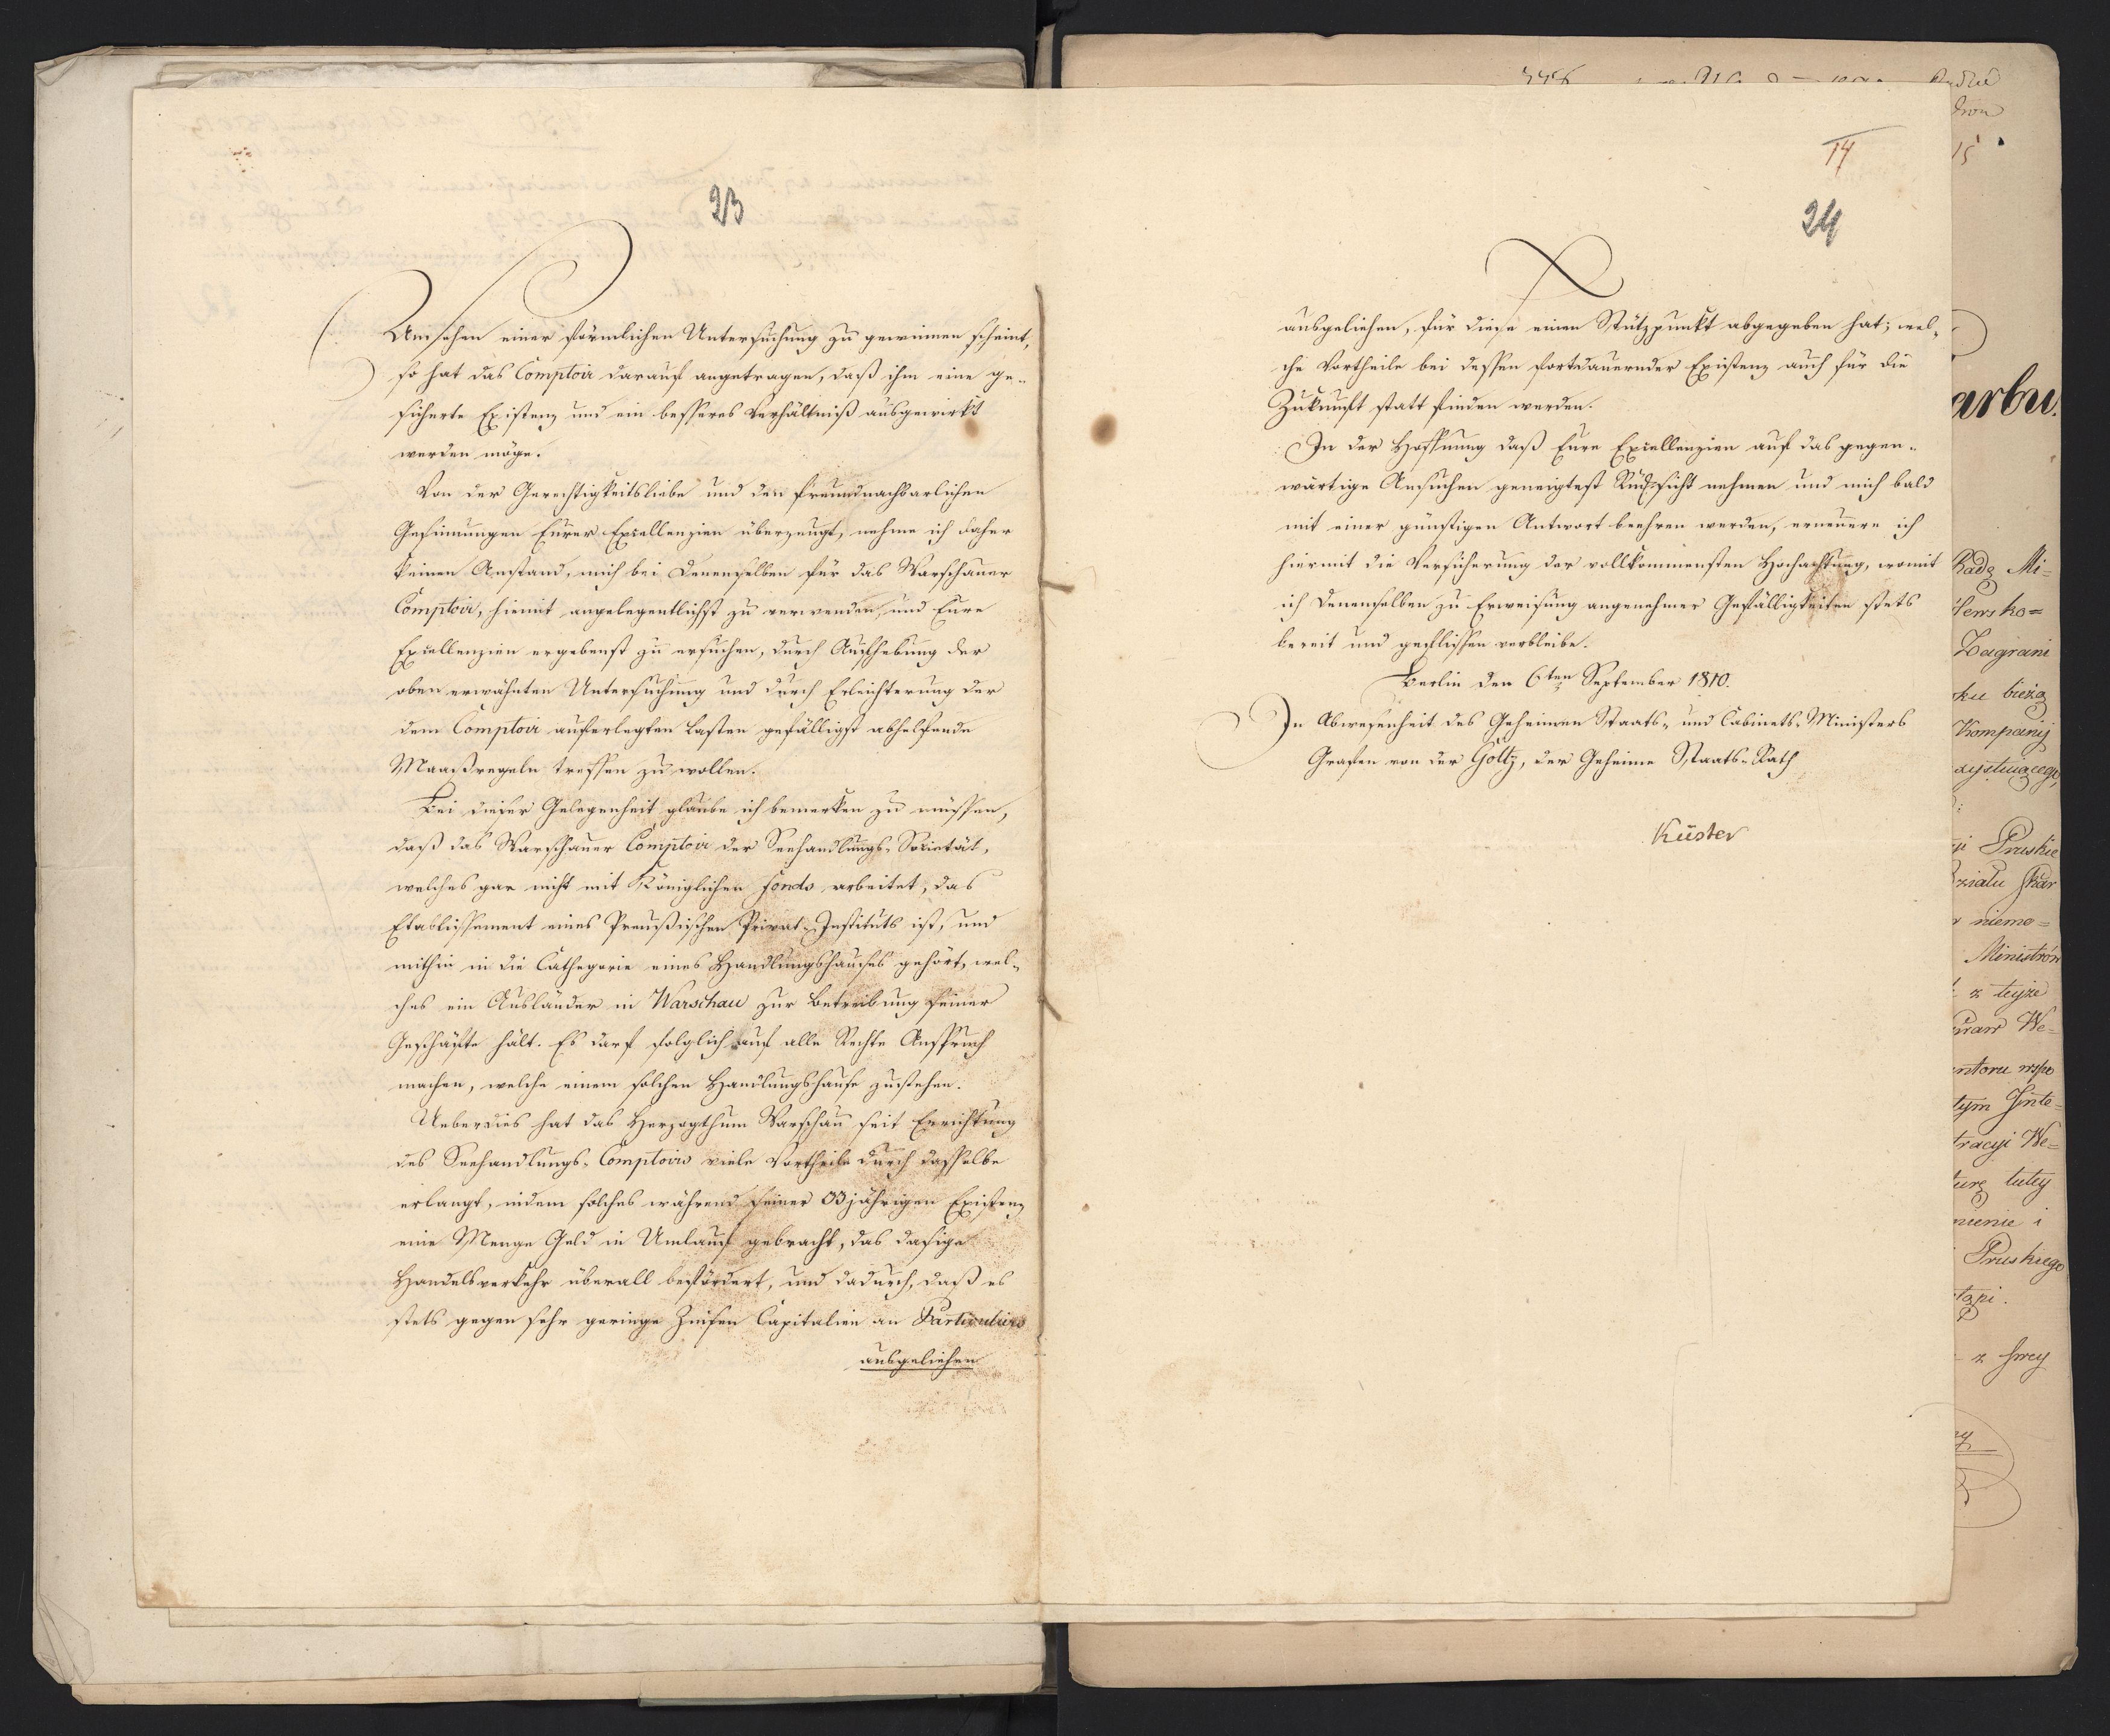 23
Ansehen einer förmlichen Untersuchung zu gewinnen scheint,
so hat das Comptoir darauf angetragen, daß ihm eine ge-
sicherte Existenz und ein besseres Verhältniß ausgewirkt
werden möge.
Von der Gerechtigkeitsliebe und den freundnachbarlichen
Gesinnungen Eurer Excellenzien überzeugt, nehme ich daher
keinen Anstand, mich bei Denenselben für das Warschauer
Comptoir, hiemit angelegentlichst zu verwenden, und Eure
Excellenzien ergebenst zu ersuchen, durch Aufhebung der
oben erwähnten Untersuchung und durch Erleichterung der
dem Comptoir auferlegten Lasten gefälligst abhelfende
Maaßregeln treffen zu wollen.
Bei dieser Gelegenheit glaube ich bemerken zu müssen,
daß das Warschauer Comptoir der Seehandlungs-Societät,
welches gar nicht mit Königlichen Fonds arbeitet, das
Etablissement eines Preußischen Privat-Instituts ist, und
mithin in die Cathegorie eines Handlungshauses gehört, wel-
ches ein Ausländer in Warschau zur Betreibung seiner
Geschäfte hält. Es darf folglich auf alle Rechte Anspruch
machen, welche einem solchen Handlungshause zustehen.
Ueberdies hat das Herzogthum Warschau seit Errichtung
des Seehandlungs-Comptoirs viele Vortheile durch dasselbe
erlangt, indem solches während seiner 33jährigen Existenz
eine Menge Geld in Umlauf gebracht, das dasige
Handelsverkehr überall befördert, und dadurch, daß es
stets gegen sehr geringe Zinsen Capitalien an Particuliers
ausgeliehen
14
24
ausgeliehen, für diese einen Stützpunkt abgegeben hat; wel-
che Vortheile bei dessen fortdauernder Existenz auch für die
Zukunft statt finden werden.
In der Hoffnung daß Eure Excellenzien auf das gegen-
wärtige Ansuchen geneigtest Rücksicht nehmen und mich bald
mit einer günstigen Antwort beehren werden, erneuere ich
hiermit die Versicherung der vollkommensten Hochachtung, womit
ich Denenselben zu Erweisung angenehmer Gefälligkeiten stets
bereit und geflissen verbleibe.
Berlin den 6ten September 1810.
In Abwesenheit des Geheimen Staats- und Cabinets-Ministers
Grafen von der Goltz, der Geheime Staats-Rath
Küster
15
arbu.
Radą Mi=
Zagrani
ku bieżą
Kompanij
Pruskie
niemo=
Ministrów
z teyże
We=
tym Inte=
tracyi We=
turę tutey
i
Pruskiego
z swey